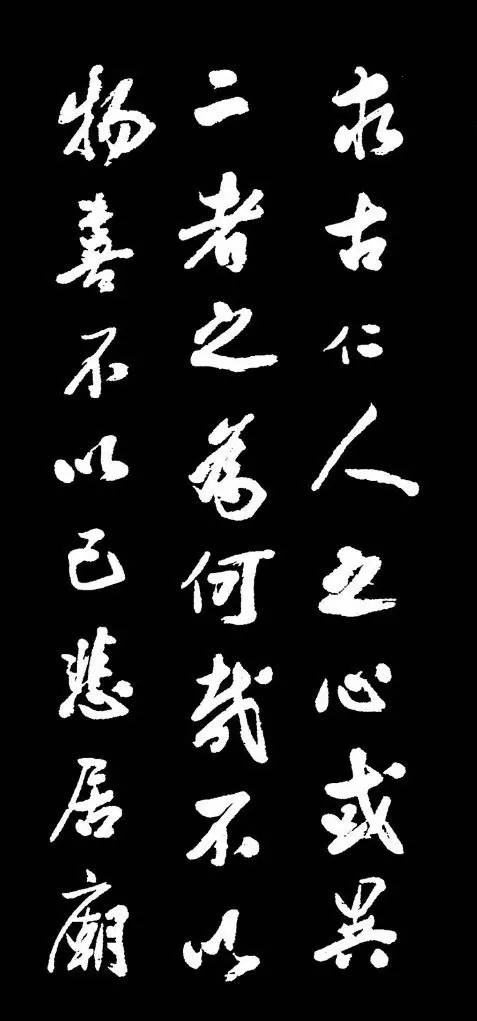 求古仁人之心或異
二者之為何哉不以
物喜不以己悲居廟